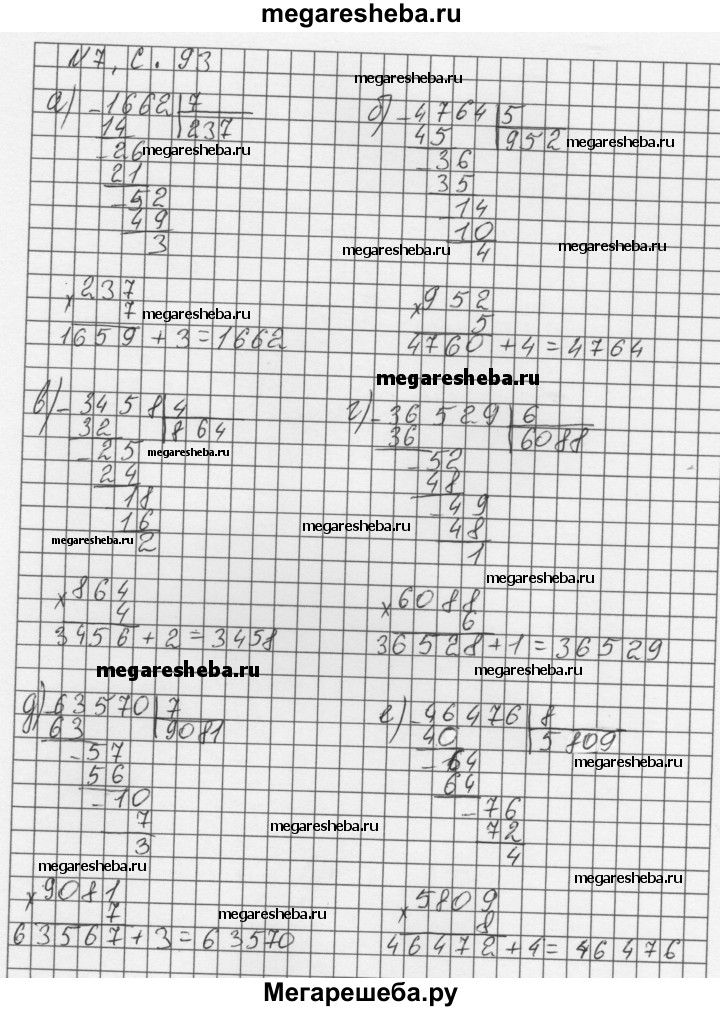 megaresheba.ru
N 7, с. 93
megaresheba.ru
а) -1662|7
14 |237
megaresheba.ru
-26
21
-52
49
3
б) -4764|5
45 |952
megaresheba.ru
-36
35
-14
10
4
megaresheba.ru
megaresheba.ru
×237
7
megaresheba.ru
1659+3=1662
×952
5
4760+4=4764
megaresheba.ru
в) -3458|4
32 |864
-25
megaresheba.ru
24
18
16
2
megaresheba.ru
г) -36529|6
36 |6088
-52
48
-49
48
1
megaresheba.ru
megaresheba.ru
×864
4
3456+2=3458
×6088
6
36528+1=36529
megaresheba.ru
megaresheba.ru
д) -63570|7
63 |9081
-57
56
-10
7
3
е) -46476|8
40 |5809
-64
megaresheba.ru
64
-76
72
4
megaresheba.ru
megaresheba.ru
megaresheba.ru
×9081
7
megaresheba.ru
63567+3=63570
×5809
8
megaresheba.ru
46472+4=46476
Мегарешеба.ру